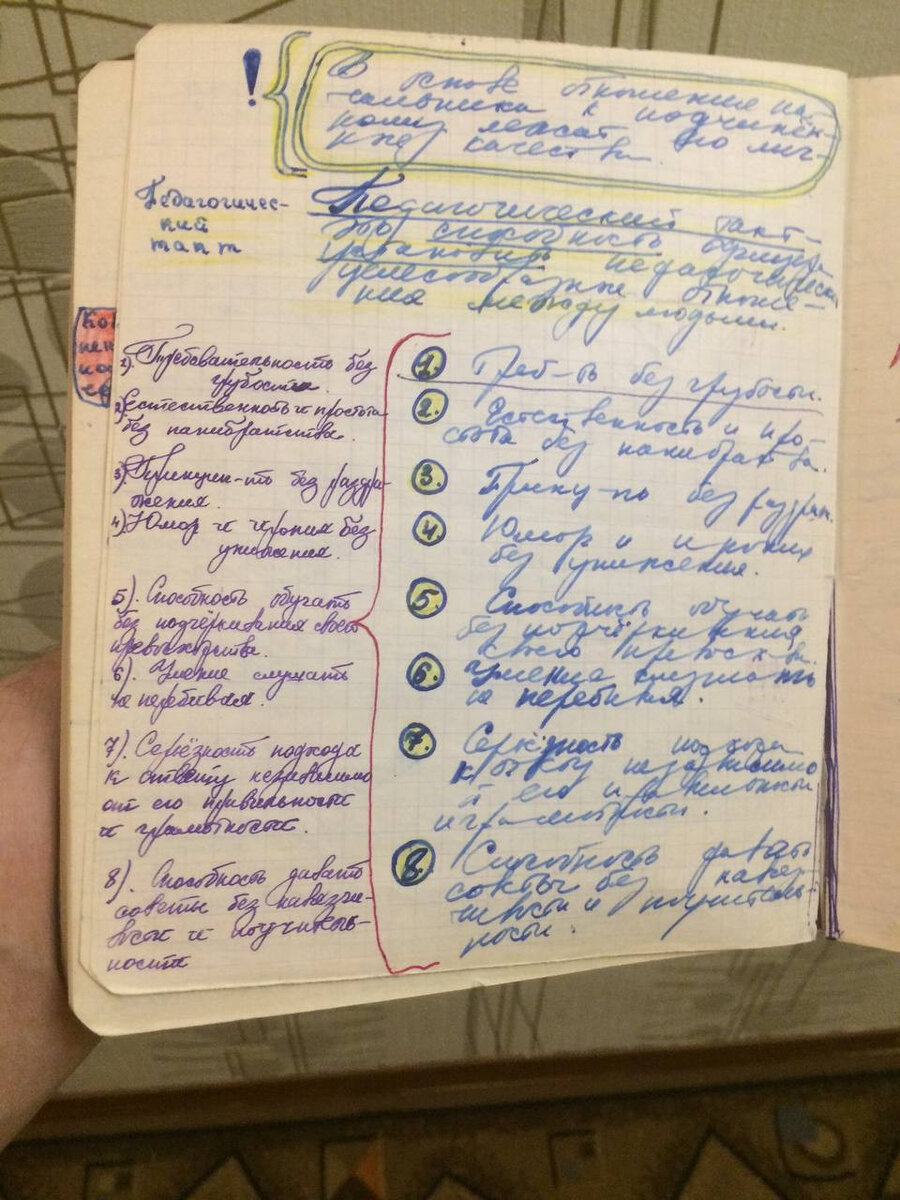 !
В основе отношения на-
чальника к подчинён-
ному лежат его лич-
ные качества.
Педагогичес-
кий
такт
Педагогический такт-
это способность
устанавливать педагогически
целесообразные отноше-
ния между людьми.
1). Требовательность без
грубости.
2). Естественность и простота
без панибратства.
3). Принцип-ть без раздра-
жения.
4). Юмор и ирония без
унижения.
5). Способность обучать
без подчёркивания своего
превосходства.
6). Умение слушать
не перебивая.
7). Серьёзность подхода
к ответу независимо
от его правильности
и грамотности.
8). Способность давать
советы без навязчи-
вости и поучитель-
ности
1. Треб-ть без грубости.
2. Естественность и про-
стота без панибратства.
3. Принц-ть без раздраж.
4. Юмор и ирония
без унижения.
5. Способность обучать
без подчёркивания
своего превосх-ва.
6. Умение слушать
не перебивая.
7. Серьёзность подхода
к ответу независимо
от его правильности
и грамотности.
8. Способность давать
советы без навяз-
чивости и поучитель-
ности.